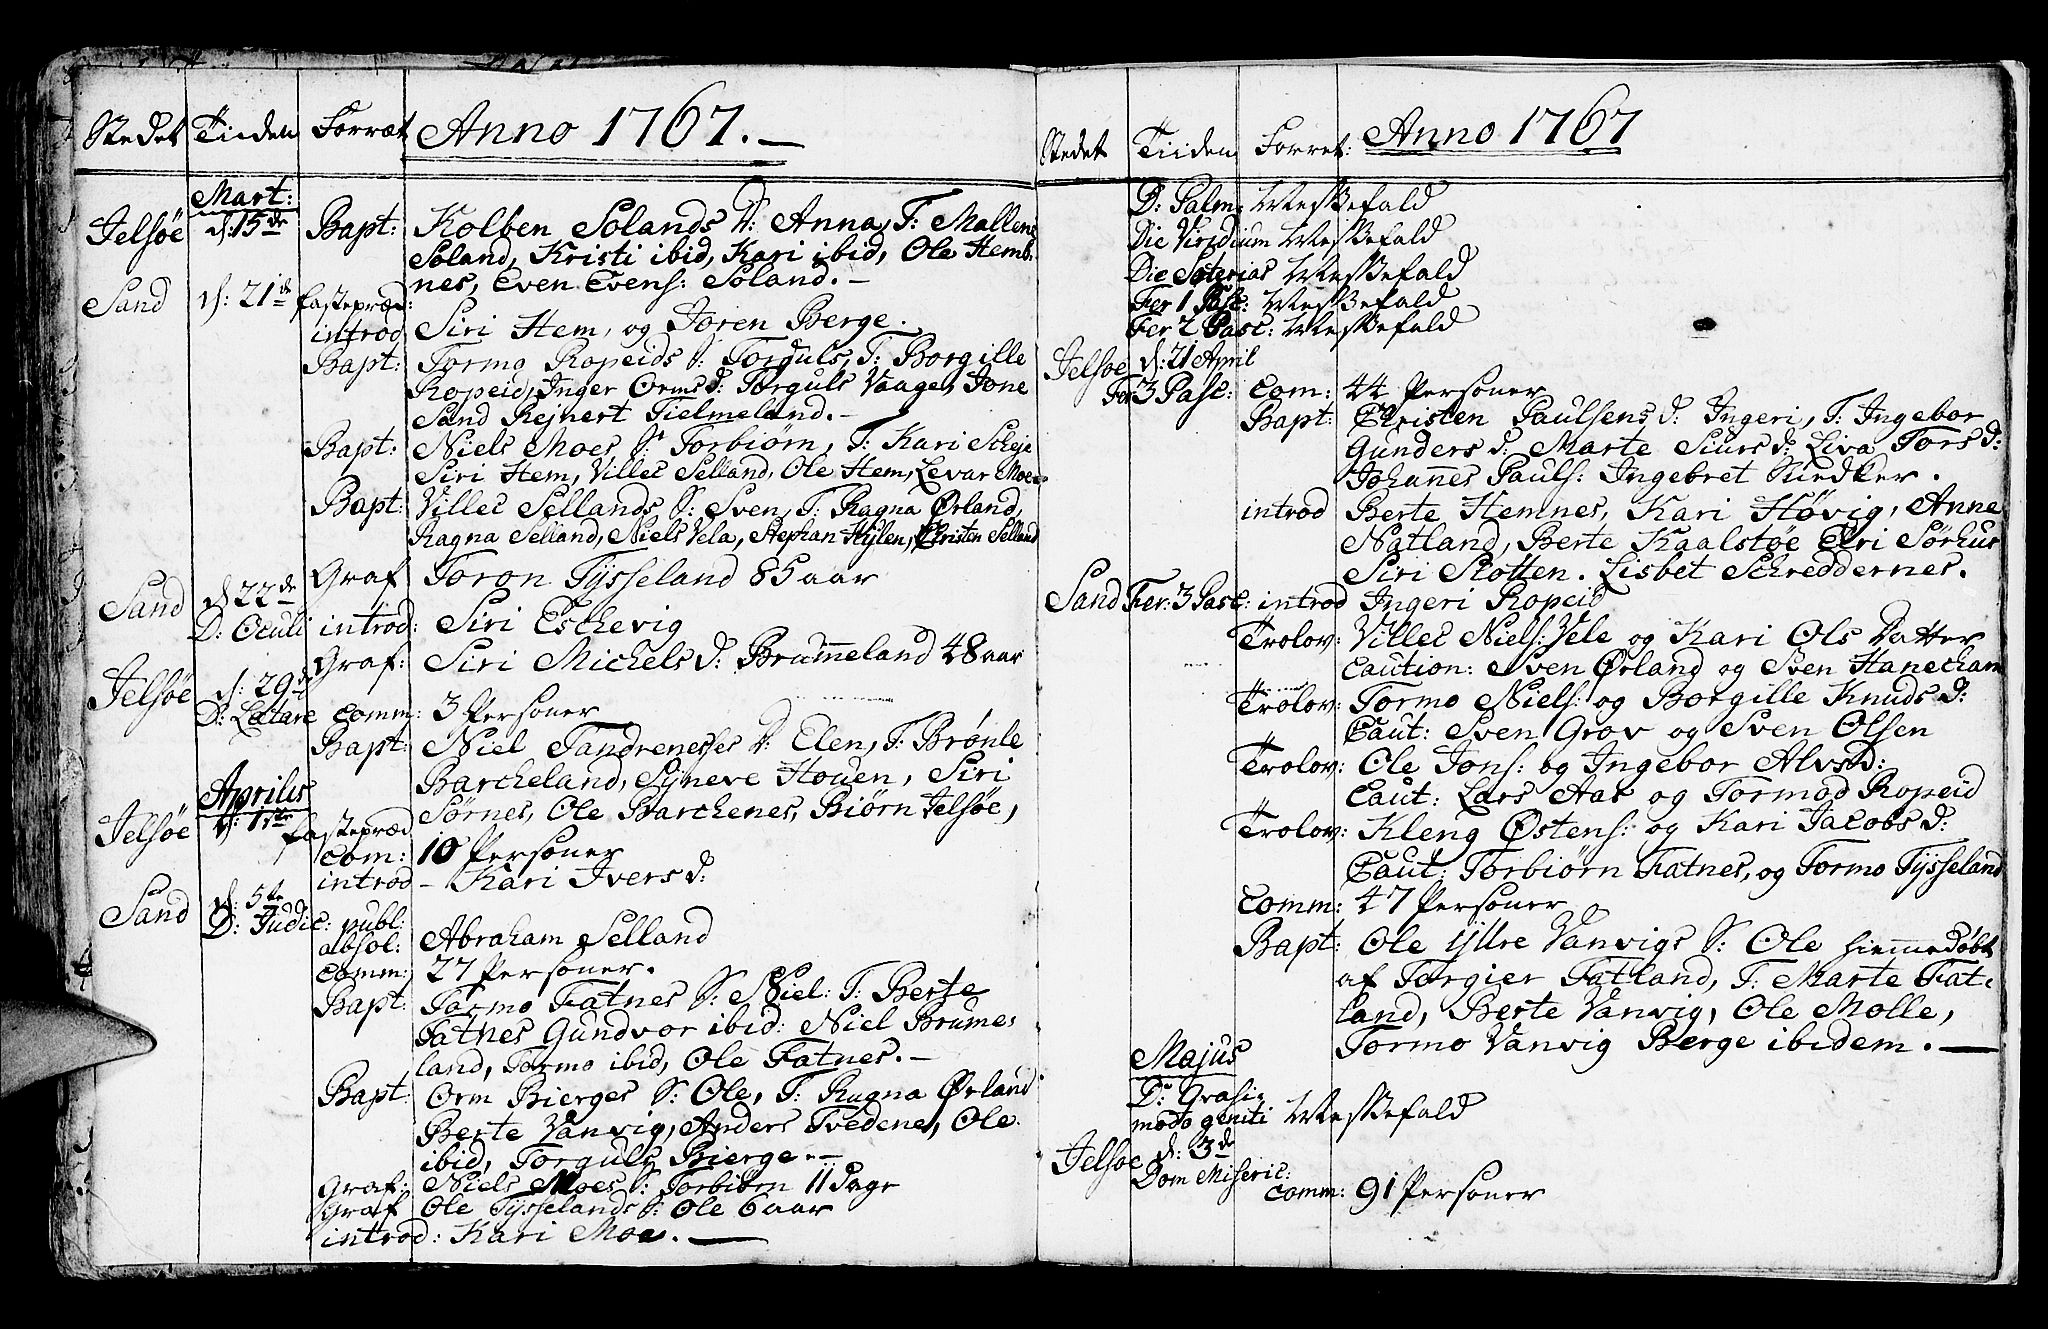 Stedet Tiiden Forret Anno 1767. —
Mart:
Jelsøe d: 15de Bapt: Kolben Solands D: Anna, T: Mallene
Soland, Kristi ibid, Kari ibid, Ole Hemb:
nes, Even Evens: Soland. —
Sand d: 21de fastepræd:
introd Siri Hem, og Joren Berge.
Bapt: Tormo Ropeids S: Torguls, T: Borgille
Ropeid, Inger Orms d: Torguls Vaage, Jone
Sand Rejnert Tielmeland. —
Bapt: Niels Moes S: Torbiørn, T: Kari Scheje
Siri Hem, Villec Selland, Ole Hem, Levar Moe
Bapt: Villec Sellands S: Sven, T: Ragna Ørland,
Ragna Selland, Niels Vela, Stephan Hylen, Christen Selland
Graf Toron Tysseland 85 aar
Sand d 22de
D: Oculi introd: Siri Eschevig
Graf: Siri Michels d: Brummeland 48 aar
Jelsøe d: 29de
D: Lætare comm: 3 Personer
Bapt: Niel Tandrenesses D: Elen, T: Brønle
Barcheland, Syneve Houen, Siri
Sørnes, Ole Barchenes, Biørn Jelsøe,
Aprilis
Jelsøe d: 1ste fastepræd
com: 10 Personer
introd – Kari Ivers d:
Sand d: 5te
D: Judic: publ:
absol: Abraham Selland
comm: 27 Personer.
Bapt: Tormo Fatnes S: Niel: T: Berte
Fatnes Gundvor ibid: Niel Brume:
land, Tormo ibid, Ole Fatnes. —
Bapt: Orm Bierges S: Ole, T: Ragna Ørland
Berte Vanvig, Anders Tvedene, Ole
ibid, Torguls Bierge. —
Graf: Niels Moes S: Torbiørn 11 Dage
Graf Ole Tysselands S: Ole 6 aar
introd: Kari Moe. —
Stedet Tiiden Forret: Anno 1767
D: Palm: Messefald
Die Viridium Messefald
Die Soterias Messefald
Fer 1 Pasc: Messefald
Fer 2 Pasc: Messefald
Jelsøe d: 21 April
Fer 3 Pasc: com: 44 Personer
Bapt: Christen Paulsens d: Ingeri, T: Ingebor
Gunders d: Marte Siurs d: Liva Tors d:
Johannes Pauls: Ingebret Snedker.
introd Berte Hemnes, Kari Høvig, Anne
Natland, Berte Kaalstøe Elri Sørhus
Siri Slotten. Lisbet Schreddernes.
Sand Fer: 3 Pasc: introd Ingeri Ropeid
Trolov: Villec Niels: Vele og Kari Ols Datter
Caution: Sven Ørland og Sven Hanecham
Trolov: Tormo Niels: og Borgille Knuds d:
Caut: Sven Grov og Sven Olsen
Trolov: Ole Jons: og Ingebor Alvs d:
Caut: Lars Aar og Tormod Ropeid
Trolov: Kleng Østens: og Kari Jacobs d:
Caut: Torbiørn Fatnes, og Tormo Tysseland
comm: 47 Personer
Bapt: Ole Yttre Vanvigs S: Ole hiemmedøbt
af Torgier Fatland, T: Marte Fat-
land, Berte Vanvig, Ole Molle,
Tormo Vanvig Berge ibidem. —
Majus
D: Qvasi-
modo geniti Messefald
Jelsøe d: 3de
Dom Miseric:
comm: 91 Personer